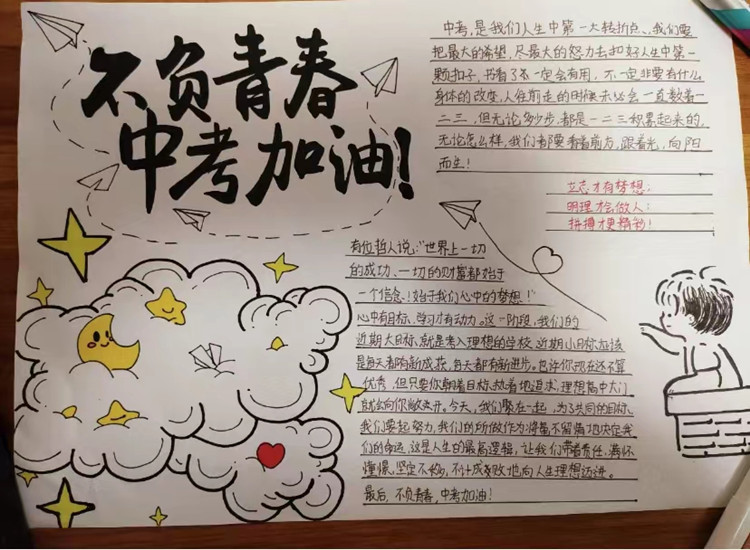 不负青春
中考加油!
中考,是我们人生中第一大转折点、我们要
把最大的希望,尽最大的努力去扣好人生中第一
颗扣子,书看了不一定会有用,不一定非要有什么
身体的改变,人往前走的时候未必会一直数着一
二三,但无论多少步,都是一二三积累起来的,
无论怎么样,我们都要看着前方,跟着光,向阳
而生!
立志才有梦想;
明理才会做人;
拼搏才更精彩!
有位哲人说:“世界上一切
的成功、一切的财富都始于
一个信念!始于我们心中的梦想!”
心中有目标,学习才有动力。这一阶段,我们的
近期大目标,就是考入理想的学校,近期小目标应该
是每天都有新成获,每天都有新进步。也许你现在还不算
优秀,但只要你朝着目标,执着地追求,理想高中大门
就会向你敞开。今天,我们聚在一起,为了共同的目标、
我们要起努力,我们的所做作为将毫不留情地决定我
们的命运,这是人生的最高逻辑,让我们带着责任、满怀
憧憬、坚定不移,不计成败地向人生理想迈进。
最后,不负青春,中考加油!